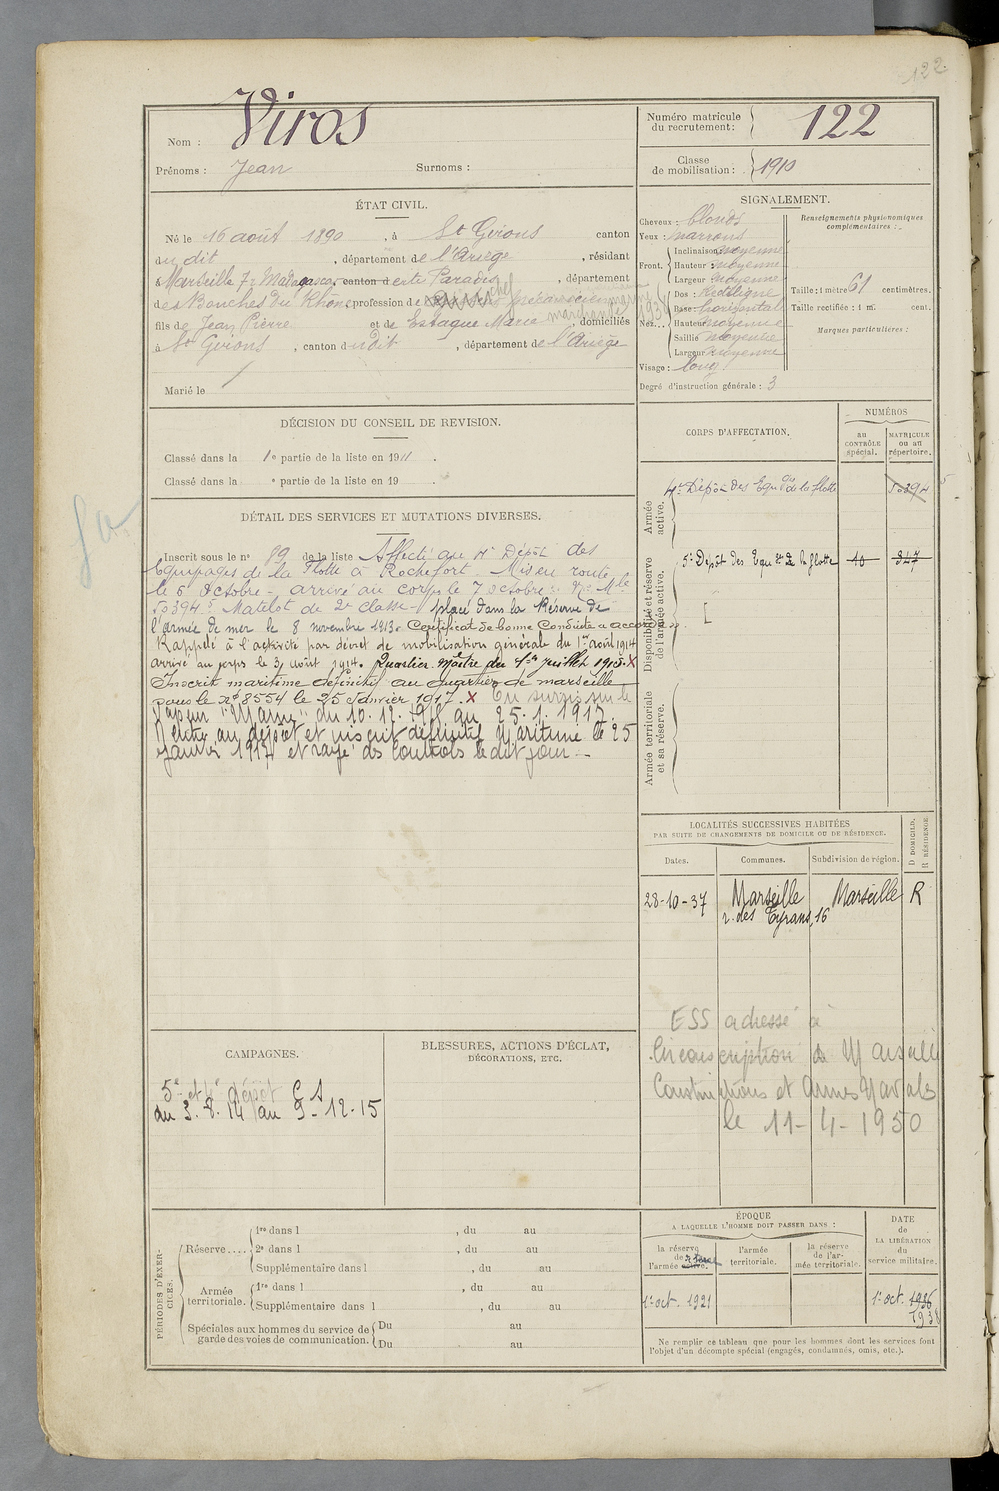 122.
Nom : Viros
Prénoms : Jean Surnoms :
Numéro matricule
du recrutement: 122
Classe
de mobilisation: 1910
ÉTAT CIVIL.
Né le 16 août 1890, à St Girons canton
dudit, département de l'Ariège, résidant
à Marseille 72 Madagascar canton de rte Paradis, département
des Bouches du Rhône profession de
marchande 1934
fils de Jean Pierre et de Estaque Marie, domiciliés
à St Girons, canton dudit, département de l'Ariège
Marié le /
SIGNALEMENT.
Cheveux : blonds
Yeux : marrons
Front. Inclinaison moyenne
Hauteur : moyenne
Largeur : moyenne
Nez... Dos : Rectiligne
Base : horizontal
Hauteur moyenne
Saillie moyenne
Largeur moyenne
Visage : long
Degré d'instruction générale : 3
Renseignements physionomiques
complémentaires :
Taille : 1 mètre 61 centimètres.
Taille rectifiée : 1 m. cent.
Marques particulières :
DÉCISION DU CONSEIL DE REVISION.
Classé dans la 1e partie de la liste en 1911.
Classé dans la e partie de la liste en 19 .
DÉTAIL DES SERVICES ET MUTATIONS DIVERSES.
Inscrit sous le no 89 de la liste Affecté au 4e Dépôt des
Equipages de la Flotte à Rochefort. Mis en route
le 6 Octobre - arrivé au corps le 7 octobre. No Mle
50394. Matelot de 2e classe. placé dans la Réserve de
l'armée de mer le 8 novembre 1913. Certificat de bonne Conduite a accordé
Rappelé à l'activité par décret de mobilisation générale du 1er août 1914
arrivé au corps le 3 août 1914. Quartier Maître du 1er juillet 1915. X
Inscrit maritime définitif au quartier de marseille
sous le no 8554 le 25 Janvier 1917. X En sursis sur le
Vapeur "Marne" du 10.12.1915 au 25.1.1917.
Rentré au dépôt et inscrit définitif Maritime le 25
janvier 1917 et rayé des contrôles le dit jour.-
CORPS D'AFFECTATION.
NUMÉROS
au
CONTRÔLE
spécial.
MATRICULE
ou au
répertoire.
Armée
active.
4e Dépôt des Equges de la flotte 50394
Disponibilité et réserve
de l'armée active.
5e Dépôt des Equges de la flotte 40 347
Armée territoriale
et sa réserve.
LOCALITÉS SUCCESSIVES HABITÉES
PAR SUITE DE CHANGEMENTS DE DOMICILE OU DE RÉSIDENCE.
Dates. Communes. Subdivision de région.
D DOMICILE.
R RÉSIDENCE.
28-10-37 Marseille Marseille R
r. des Tyrans, 16
ESS adressé à
Circonscription de Marseille
Constructions et Armes Navales
le 11-4-1950
CAMPAGNES.
5e et 4e dépôt C S
du 3.8.14 au 9-12.15
BLESSURES, ACTIONS D'ÉCLAT,
DÉCORATIONS, ETC.
PÉRIODES D'EXER-
CICES.
Réserve.... 1re dans l , du au
2e dans l , du au
Supplémentaire dans l , du au
Armée
territoriale. 1re dans l , du au
Supplémentaire dans l , du au
Spéciales aux hommes du service de
garde des voies de communication. Du au
Du au
ÉPOQUE
A LAQUELLE L'HOMME DOIT PASSER DANS :
la réserve
de
l'armée active.
l'armée
territoriale.
la réserve
de l'ar-
mée territoriale.
DATE
de
LA LIBÉRATION
du
service militaire.
1er oct. 1921
1er oct. 1936
1938
Ne remplir ce tableau que pour les hommes dont les services font
l'objet d'un décompte spécial (engagés, condamnés, omis, etc.).